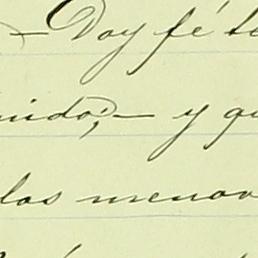 — Doy fé te
nido; — y qu
las menor